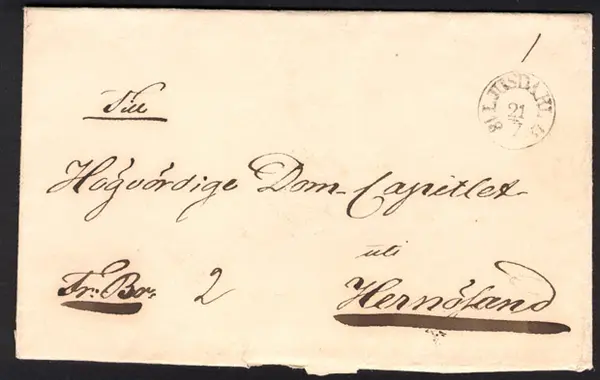 1
LJUSDAHL
21
7
Till
Högvördige Dom-Capitlet
uti
Fr: Br. 2 Hernösand